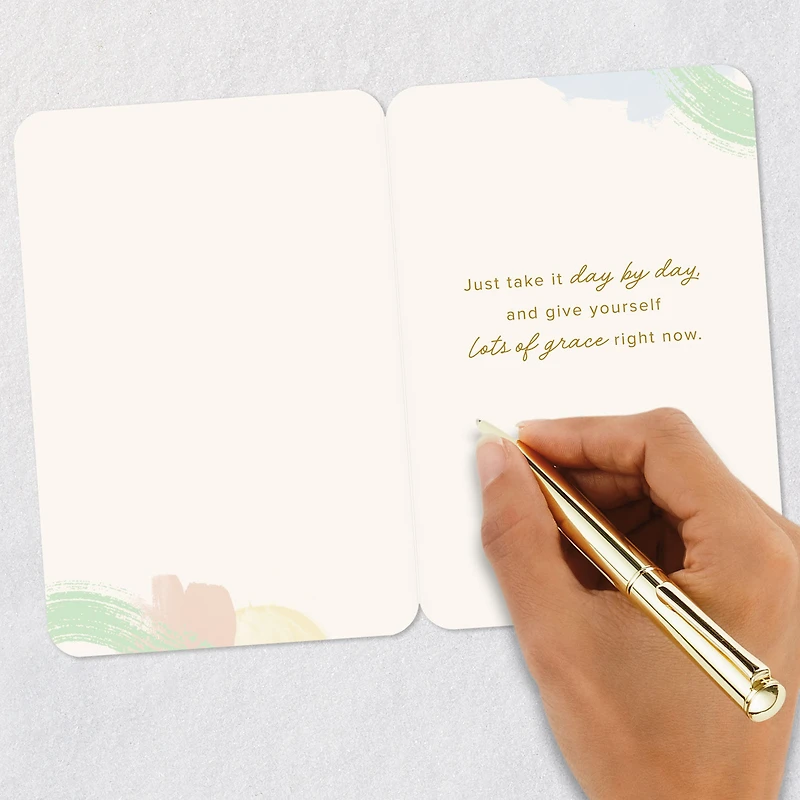 Just take it day by day,
and give yourself
lots of grace right now.